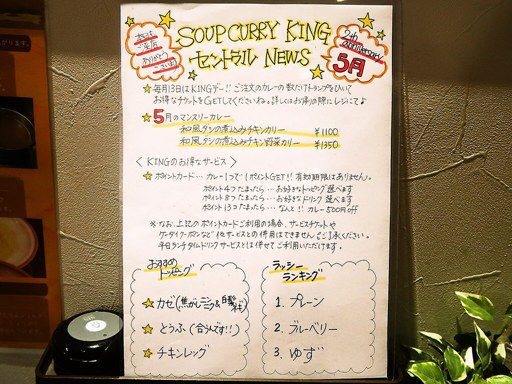 本日は
ご来店
ありがとう
ございます
SOUP CURRY KING
セントラル NEWS
2th
anniversary
5月
★毎月13日はKINGデー!! ご注文のカレーの数だけトランプをひいて
お得なチケットをGETしてくださいね。詳しくはお帰りの際にレジにて♪
★5月のマンスリーカレー
和風ダシの煮込みチキンカリー ¥1100
和風ダシの煮込みチキン野菜カリー ¥1350
〈KINGのお得なサービス〉
★ポイントカード… カレー1つで1ポイントGET!! 有効期限はありません。
ポイント4つたまったら… お好きなトッピング選べます
ポイント8つたまったら… お好きなドリンク選べます
ポイント13コたまったら… なんと!! カレー500円off
※なお、上記のポイントカードご利用の場合、サービスチケットや
ケータイクーポンなど他サービスとの併用はできません。ご了承ください。
平日ランチタイムドリンクサービスとは併せてご利用いただけます。
おすすめ
トッピング
★カゼ(焦がしニンニク&自家製
★とうふ(合うんです!!)
★チキンレッグ
ラッシー
ランキング
1. プレーン
2. ブルーベリー
3. ゆず